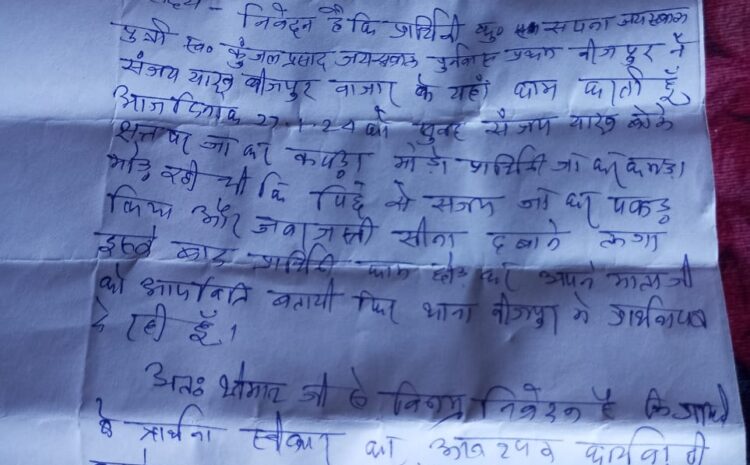 महोदय - निवेदन है कि प्रार्थिनी कु० सपना जायसवाल
पुत्री स्व० कुंजल प्रसाद जयसवाल पुर्नवास प्रथम बीजपुर में
संजय यादव बीजपुर बाजार के यहाँ काम करती हूँ
आज दिनांक 27-1-24 को सुबह संजय यादव बोले
छत पर जा कर कपड़ा मोड़ो प्रार्थिनी जा कर कपड़ा
मोड़ रही थी कि पिछे से संजय जा कर पकड़
लिया और जबरजस्ती सीना दबाने लगा
इसके बाद प्रार्थिनी काम छोड़ कर अपने माता जी
को आपबिति बतायी फिर थाना बीजपुर में प्रार्थनापत्र
दे रही हूँ।
अतः श्रीमान जी से विनम्र निवेदन है कि
प्रार्थना स्वीकार कर आवश्यक कार्यवाही